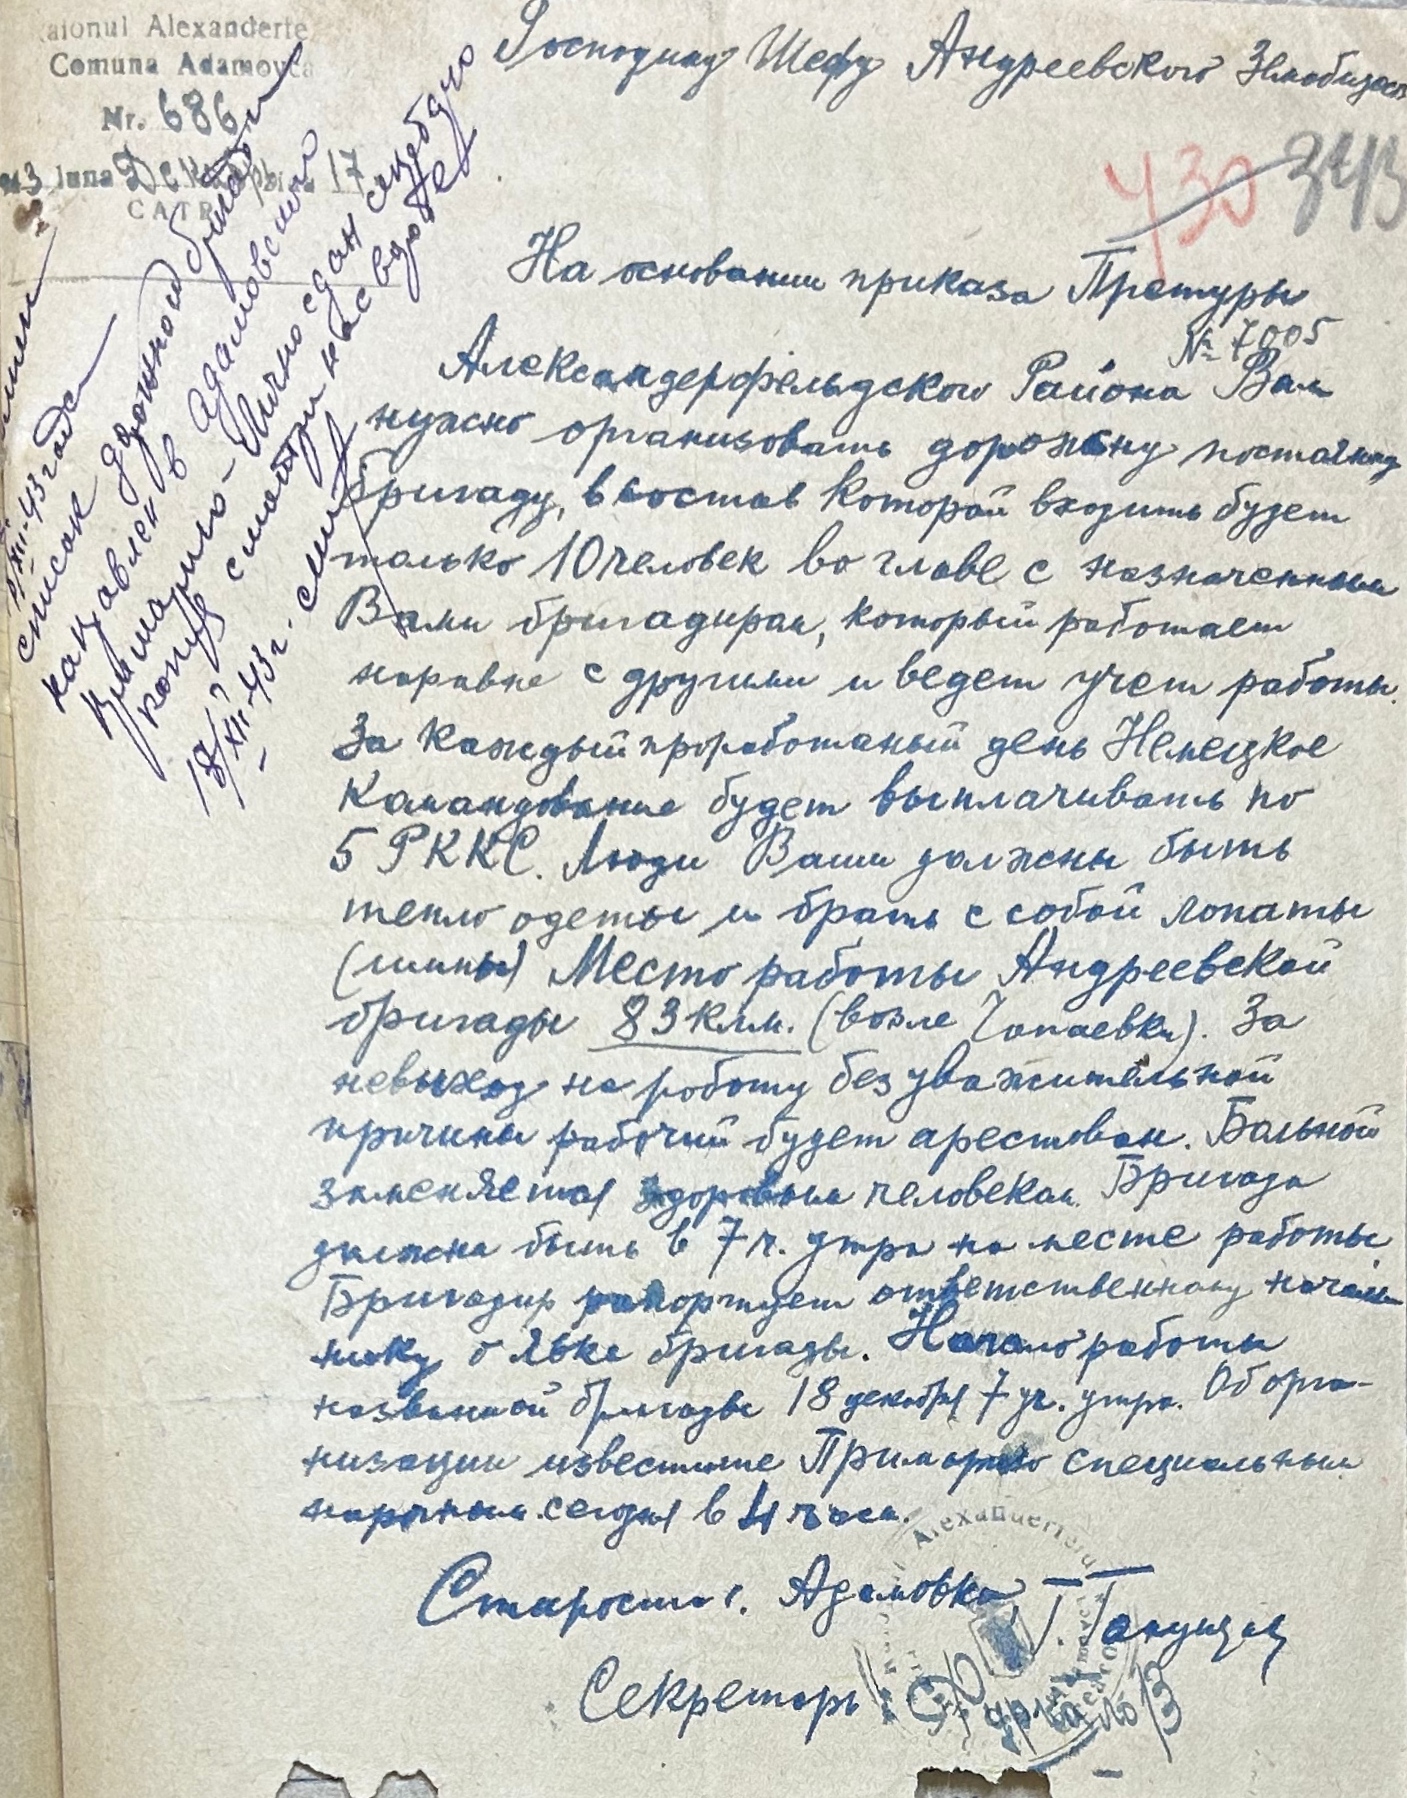 Raionul Alexanderfe
Comuna Adamovca
Nr. 686
943 luna Декабрь 17
CATR
Господину Шефу Андреевского
430 343
На основании приказа Претуры
№ 7005
Александерфельдского Района Вам
нужно организовать дорожну постоянную
бригаду, в состав которой входить будет
только 10 человек во главе с назначенным
Вами бригадиром, который работает
наравне с другими и ведет учет работы.
За каждый проработаный день Немецкое
Командование будет выплачивать по
5 РККС. Люди Ваши должны быть
тепло одеты и брать с собой лопаты
Место работы Андреевской
бригады 83 клм. (возле Чапаевки). За
невыход на работу без уважительной
причины рабочий будет арестован. Больной
заменяется здоровым человеком. Бригада
должна быть в 7 ч. утра на месте работы.
Бригадир рапортует ответственному началь
нику о явке бригады. Начало работы
названной бригады 18 декабря 7 ч. утра. Об орга-
низации известите Примарию специальным
нарочным сегодня в 4 часа.
Староста с. Адамовка
Секретарь
Alexanderfeld
XII-43 года
список дорожной бригады
направлен в Адамовскую
Примарию - Лично сдан
копия смотри на обороте
18/XII-43 г.